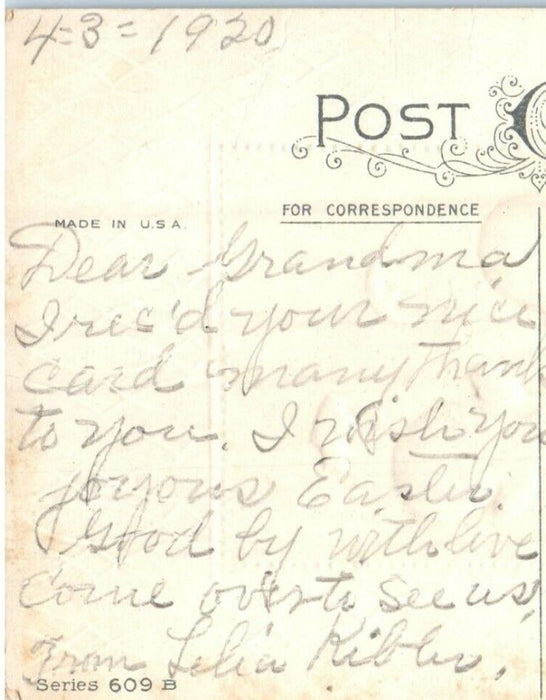 4-3-1920
POST
FOR CORRESPONDENCE
MADE IN U.S.A.
Dear Grandma
I rec'd your nice
card many thank
to you. I wish you
joyous Easter.
Good by with love
Come over to see us,
From Lelia Kibler.
Series 609 B